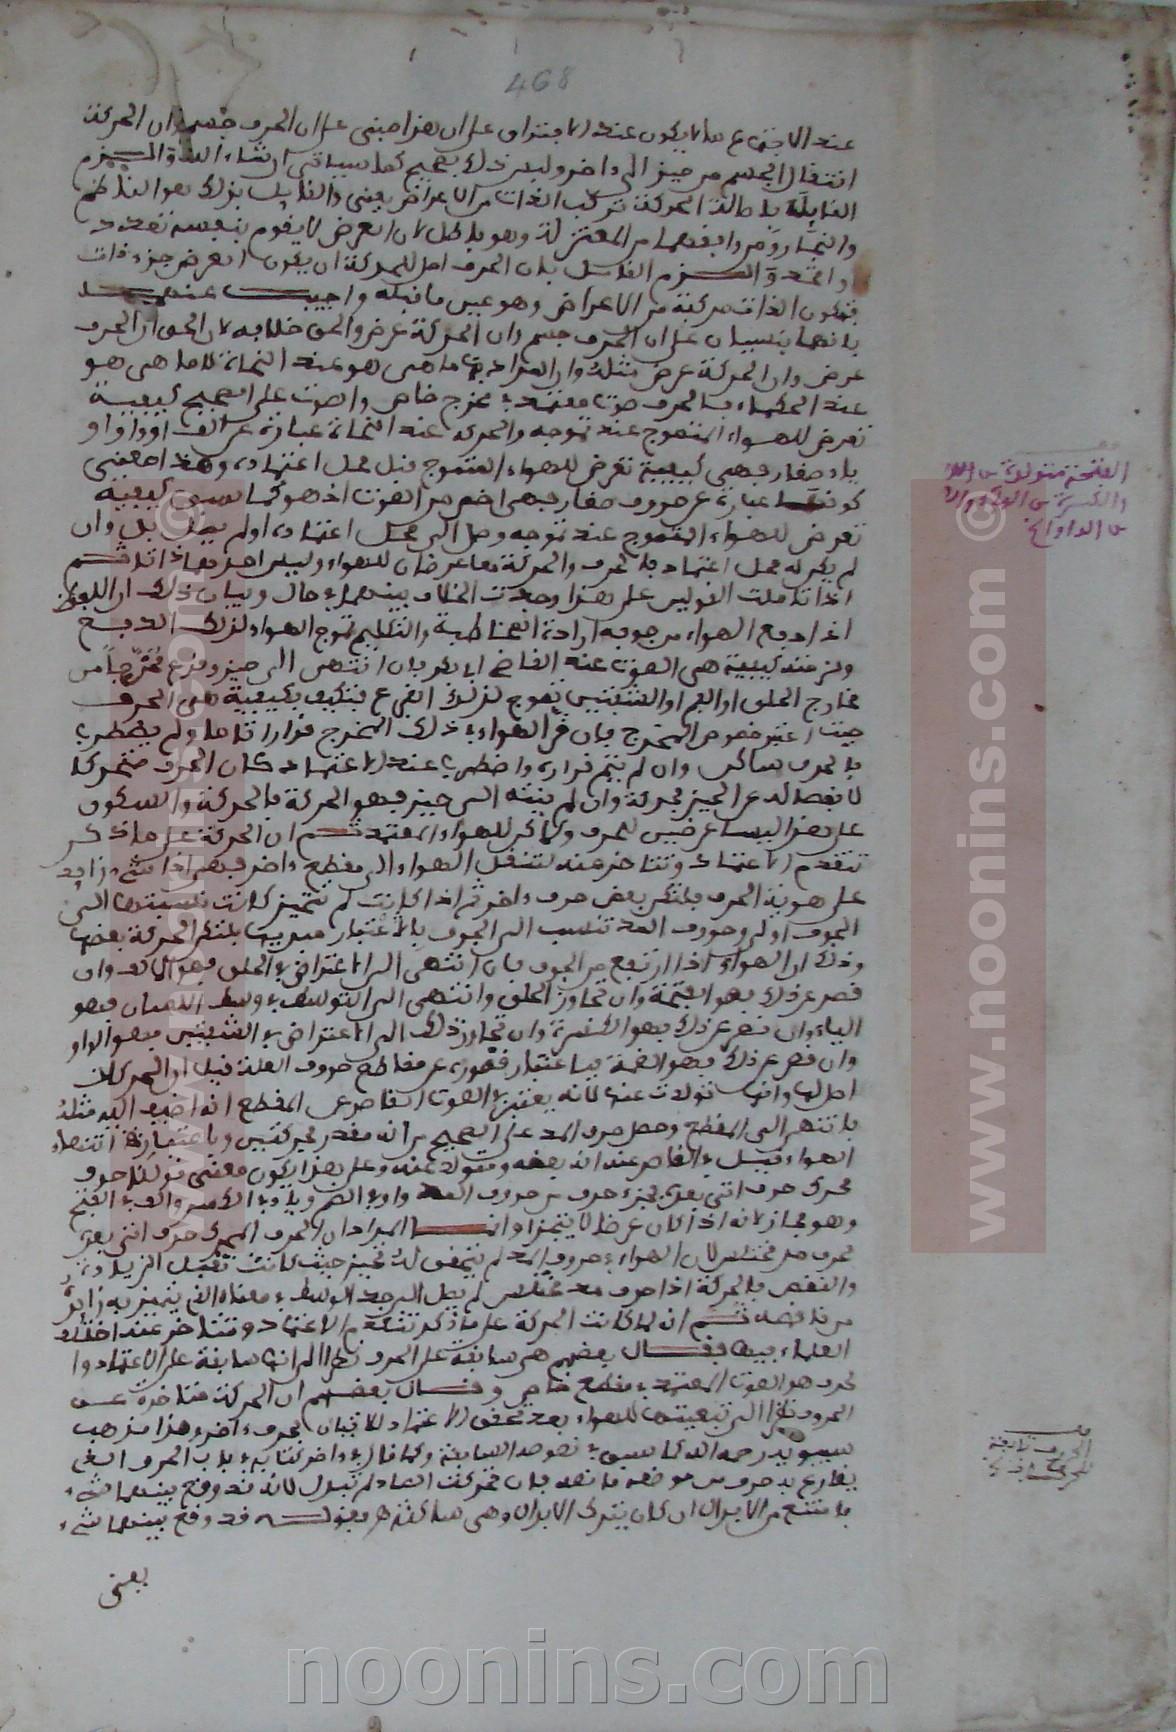 468
عند الاجتماع ما لا يكون عند الافتراق على ان هذا مبني على ان الحرف جسم وان الحركة
انتقال الجسم من حيز الى ءاخر وليس ذلك بصحيح كما سياتي ان شاء الله
القابلة باحالة الحركة تركب الذات من الاعراض يعني والقايل بذلك هو النظام
والنجار ومن وافقهما من المعتزلة وهو باطل لان العرض لا يقوم بنفسه تعدد
او اتحد و الزم القايل بان الحرف اصل للحركة ان يكون العرض جزء ذات
فتكون الذات مركبة من الاعراض وهو عين ما قبله واجيب عنهما
بانهما ينبنيان على ان الحرف جسم وان الحركة عرض والحق خلافه لان الحق ان الحرف
عرض وان الحركة عرض مثله وان المراد بها ما هي هو عند النحاة لا ما هي هو
عند الحكماء فالحرف صوت معتمد في مخرج خاص والصوت على الصحيح كيفية
تعرض للهواء المتموج عند تموجه والحركة عند النحاة عبارة عن الف او واو او
ياء صغار فهي كيفية تعرض للهواء المتموج قبل محل اعتماده وهذا معنى
كونها عبارة عن حروف صغار فهي اخص من الصوت اذ هو كما سبق كيفية
تعرض للهواء المتموج عند تموجه وصل الى محل اعتماده او لم يصل بل وان
لم يكن له محل اعتماد فالحرف والحركة معا عرضان للهواء وليس احدهما ذاتا ثم
اذا تاملت القولين على هذا وجدت الخلاف بينهما في حال وبيان ذلك ان اللافظ
اذا دفع الهواء من جوفه ارادة المخاطبة والتكليم تموج الهواء لذلك الدفع
ولزمته كيفية هي الصوت عند القاضي ابي بكر فان انتهى الى حيز وقرع مخرجا من
مخارج الحلق او الفم او الشفتين تموج لذلك القرع فتكيف بكيفية هي الحرف
حيث اعتبر خصوص المخرج فان قر الهواء في ذلك المخرج قرارا تاما ولم يضطرب
فالحرف ساكن وان لم يتم قراره واضطرب عند الاعتماد كان الحرف متحركا
لانفصاله عن الحيز بحركة وان لم ينته الى حيز فهو الحركة فالحركة والسكون
على هذا ليسا عرضين للحرف ولكن للهواء المعتمد ثم ان الحركة على ما ذكر
تتقدم الاعتماد وتتاخر عنه لتنقل الهواء الى مقطع ءاخر فهي اذا شيء زايد
على هوية الحرف فلتكن بعض حرف ءاخر ثم اذا كانت لم تتحيز كانت نسبتها الى
الجوف اولى وحروف المد تنسب الى الجوف بالاعتبار فلتكن الحركة بعضها
وذلك ان الهواء اذا ارتفع من الجوف فان انتهى الى الاعتراض في الحلق فهو الالف وان
قصر عن ذلك فهو الفتحة وان تجاوز الحلق وانتهى الى التوسط في وسط اللسان فهو
الياء وان قصر عن ذلك فهو الكسرة وان تجاوز ذلك الى الاعتراض في الشفتين فهو الواو
وان قصر عن ذلك فهو الضمة فباعتبار قصوره عن مقاطع حروف العلة قيل ان الحركات
اصل لها وانها تولدت عنها لانه يعتبر في الصوت القاصر عن المقطع انه اضيف اليه مثله
فانتهى الى المقطع وحصل حرف المد على الصحيح من انه مقدر بحركتين وباعتبار انتهاء
الهواء قيل في القاصر عنه انه بعضه ومتولد عنه وعلى هذا يكون معنى قولنا حرف
محرك حرف اتي بعده بجزء حرف من حروف العلة واو في الضم وياء في الكسر والف في الفتح
وهو مجاز لانه اذا كان عرضا لا يتجزا وانما المراد ان الحرف المحرك حرف اتي بعده
بحرف مد مختلس لان الهواء في حروف المد لم يتحقق له تحيز حيث كانت تقبل الزيادة
والنقص فالحركة اذا حرف مد مختلس لم يصل الى حد الوسط في مقداره الذي يتميز به زايده
من ناقصه ثم ان لما كانت الحركة على ما ذكر تتقدم الاعتماد وتتاخر عنه اختلف
العلماء فيها فقال بعضهم هي سابقة على الحرف نظرا الى انها سابقة على الاعتماد وا
لحرف هو الصوت المعتمد في مقطع خاص وقال بعضهم ان الحركة متاخرة عن
الحرف نظرا الى تبعيتها للهواء بعد تحقق الاعتماد للاتيان بحرف ءاخر وهذا مذهب
سيبويه رحمه الله كما سبق في نصوصه السابقة وكما قال في ءاخر كتابه في باب الحرف الذي
يضارع به حرف من موضعه ما نصه فان تحركت الصاد لم تبدل لانه قد وقع بينهما شيء
فامتنع من الابدال ان كان يترك الابدال وهي ساكنة فقوله قد وقع بينهما شيء
يعني
الفتحة متولدة من الالف
والكسرة من الياء والضمة
من الواو
الحرف سابقة